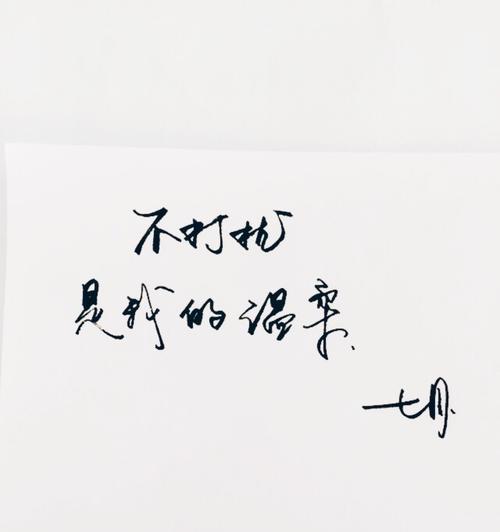 不打扰
是我的温柔.
一七月.